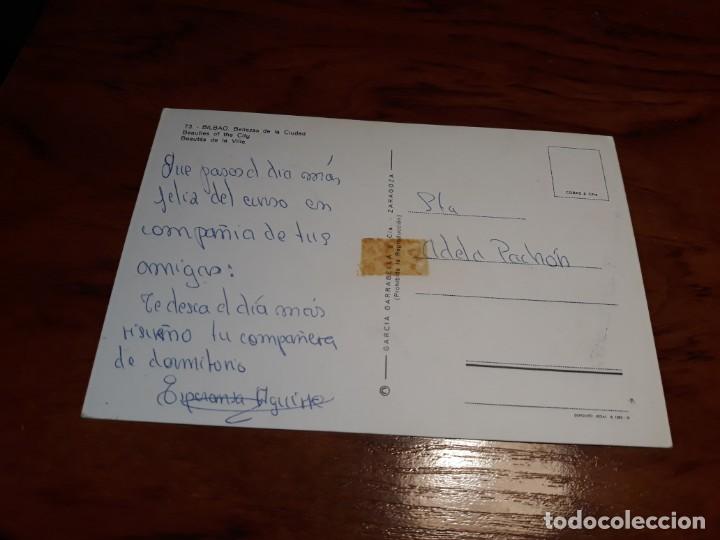 73 - BILBAO. Bellezas de la Ciudad
Beauties of the City
Beautés de la Ville
Que pases el día más
feliz del curso en
compañia de tus
amigas:
Te desea el día más
risueño tu compañera
de dormitorio
Esperanza Aguirre
© GARCIA GARRABELLA y Cía. - ZARAGOZA
(Prohibida la Reproducción)
COBAS Z CPla
Sta
Adela Pachón
DEPOSITO LEGAL B.
todocoleccion
todocoleccion.net